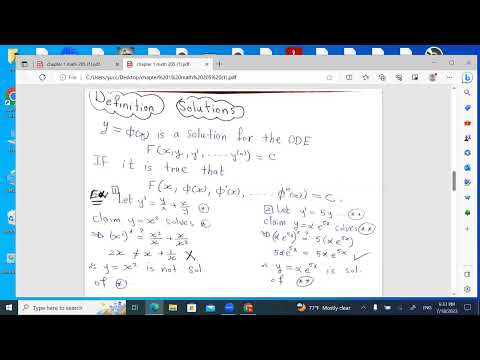 chapter 1 math 205 (1).pdf
chapter 1 math 205 (1).pdf
Definition Solutions
y = ϕ(x) is a solution for the ODE
F(x, y, y', ..... y⁽ⁿ⁾) = c
If it is true that
F(x, ϕ(x), ϕ'(x), .... ϕⁿ(x)) = C.
Ex 1 Let y' = y/x + x/y *
claim y = x² solves *
⇒ (x²)' ?= x²/x + x/x²
2x ≠ x + 1/x ✗
∴ y = x² is not sol.
of *
2 Let y' = 5y .... **
claim y = α e^5x solves **
⇒ (α e^5x)' ?= 5(α e^5x)
5α e^5x = 5α e^5x ✓
∴ y = α e^5x is sol.
of **
Type here to search
77°F Mostly clear
ENG
6:33 PM
7/18/2023